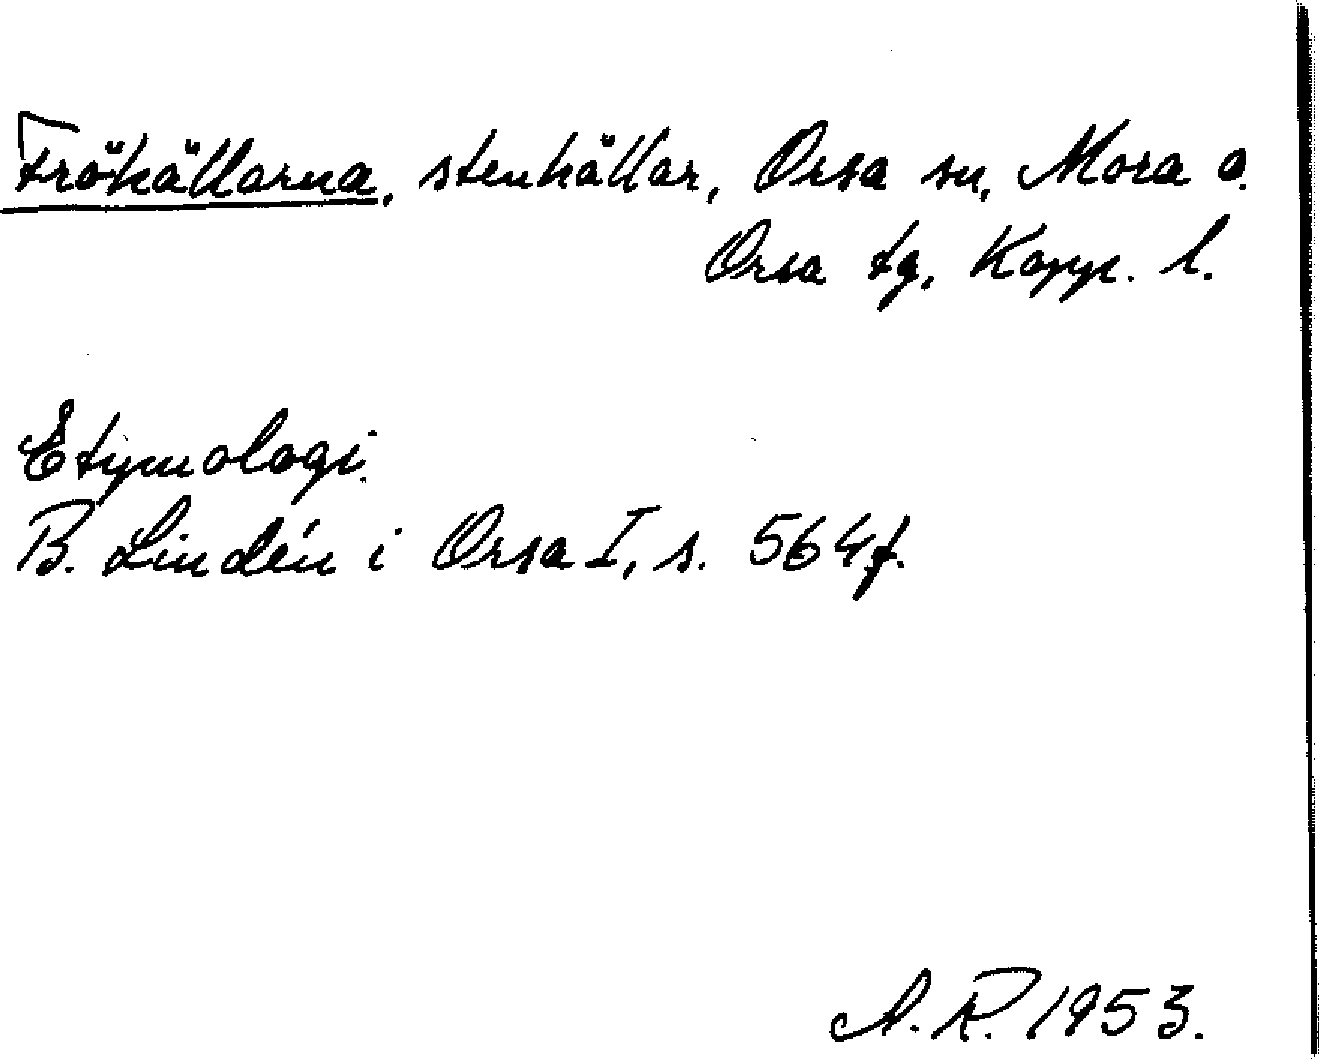 Fröhällarna, stenhällar, Orsa sn, Mora o.
Orsa tg, Kopp. l.
Etymologi.
B. Lindén i Orsa I, s. 564 f.
A. R. 1953.